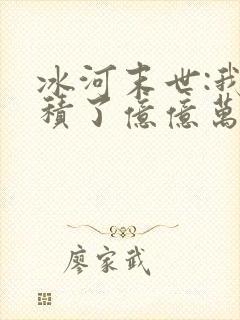 冰河末世:我
積了億億萬
廖家武